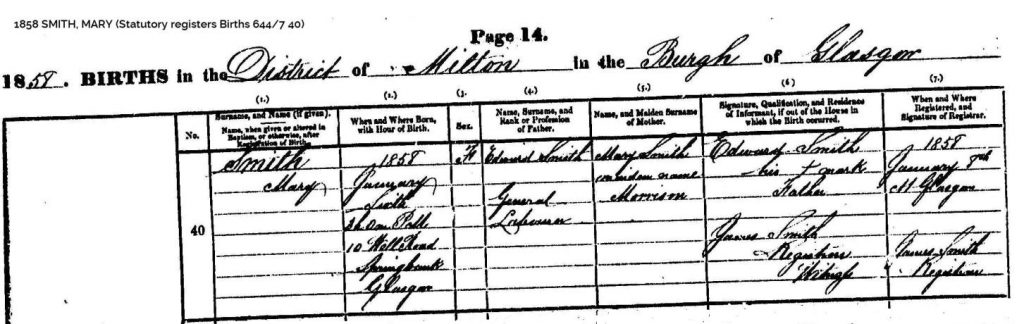 1858 SMITH, MARY (Statutory registers Births 644/7 40)
Page 14.
1858. BIRTHS in the District of Milton in the Burgh of Glasgow
(1.) (2.) (3.) (4.) (5.) (6.) (7.)
No.
Surname, and Name (if given).
Name, when given or altered in
Baptism, or otherwise, after
Registration of Birth.
When and Where Born,
with Hour of Birth.
Sex.
Name, Surname, and
Rank or Profession
of Father.
Name, and Maiden Surname
of Mother.
Signature, Qualification, and Residence
of Informant, if out of the House in
which the Birth occurred.
When and Where
Registered, and
Signature of Registrar.
40
Smith
Mary
1858
January
Sixth
10 Well Road
Springbank
Glasgow
F
Edward Smith
General
Labourer
Mary Smith
maiden name
Morrison
Edward Smith
his + mark
Father
James Smith
Registrar
Witness
1858
January
At Glasgow
James Smith
Registrar